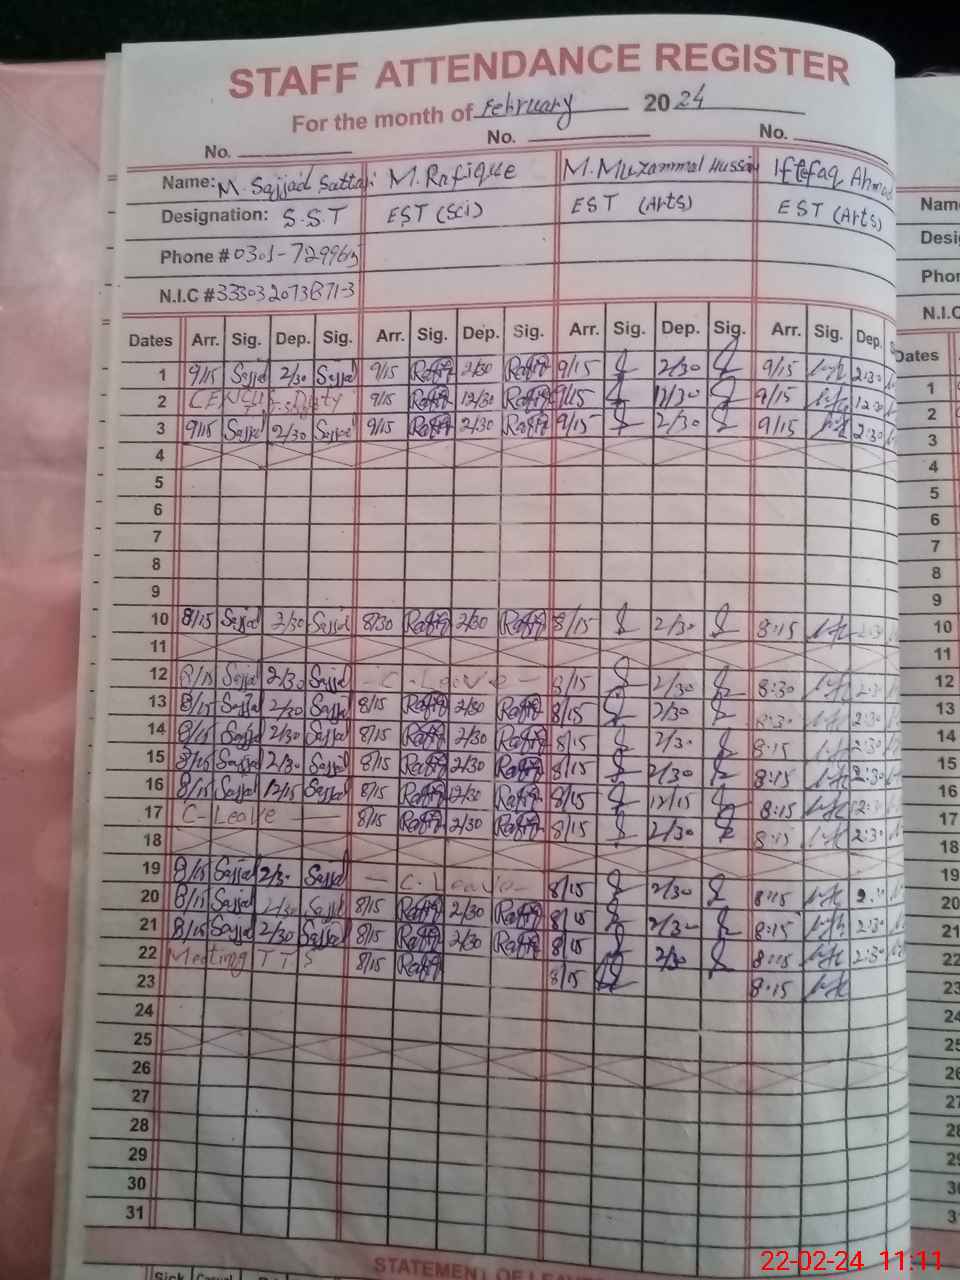 STAFF ATTENDANCE REGISTER
For the month of February 2024
No. No. No.
Name: M. Sajjad Sattar M. Rafique M. Muzammal Hussain Iftefaq Ahmad Name
Designation: S.S.T EST (Sci) EST (Arts) EST (Arts)
Phone #
N.I.C #
Dates Arr. Sig. Dep. Sig. Arr. Sig. Dep. Sig. Arr. Sig. Dep. Sig. Arr. Sig. Dep. Dates
1 9/15 Sajjad 2/30 Sajjad 9/15 Rafiq 2/30 Rafiq 9/15 2/30 9/15 2:30 1
2 Duty 9/15 Rafiq 12/30 Rafiq 9/15 12/30 9/15 12:30 2
3 9/15 Sajjad 2/30 Sajjad 9/15 Rafiq 2/30 Rafiq 9/15 2/30 9/15 2:30 3
4 4
5 5
6 6
7 7
8 8
9 9
10 8/15 Sajjad 2/30 Sajjad 8/30 Rafiq 2/30 Rafiq 8/15 2/30 8:15 2:30 10
11 11
12 8/15 Sajjad 2/30 Sajjad - C-Leave - 8/15 2/30 8:30 2:30 12
13 8/15 Sajjad 2/30 Sajjad 8/15 Rafiq 2/30 Rafiq 8/15 2/30 8:30 2:30 13
14 8/15 Sajjad 2/30 Sajjad 8/15 Rafiq 2/30 Rafiq 8/15 2/30 8:15 2:30 14
15 8/15 Sajjad 2/30 Sajjad 8/15 Rafiq 2/30 Rafiq 8/15 2/30 8:15 2:30 15
16 8/15 Sajjad 12/15 Sajjad 8/15 Rafiq 12/30 Rafiq 8/15 12/15 8:15 16
17 C-Leave 8/15 Rafiq 2/30 Rafiq 8/15 2/30 8:15 2:30 17
18 18
19 8/15 Sajjad 2/30 Sajjad - C-Leave - 8/15 2/30 8:15 19
20 8/15 Sajjad 2/30 Sajjad 8/15 Rafiq 2/30 Rafiq 8/15 2/30 8:15 2:30 20
21 8/15 Sajjad 2/30 Sajjad 8/15 Rafiq 2/30 Rafiq 8/15 2/30 8:15 2:30 21
22 Meeting T T S 8/15 Rafiq 8/15 8:15 22
23 23
24 24
25 25
26 26
27 27
28 28
29 29
30 30
31
STATEMENT OF
Sick Casual
22-02-24 11:11